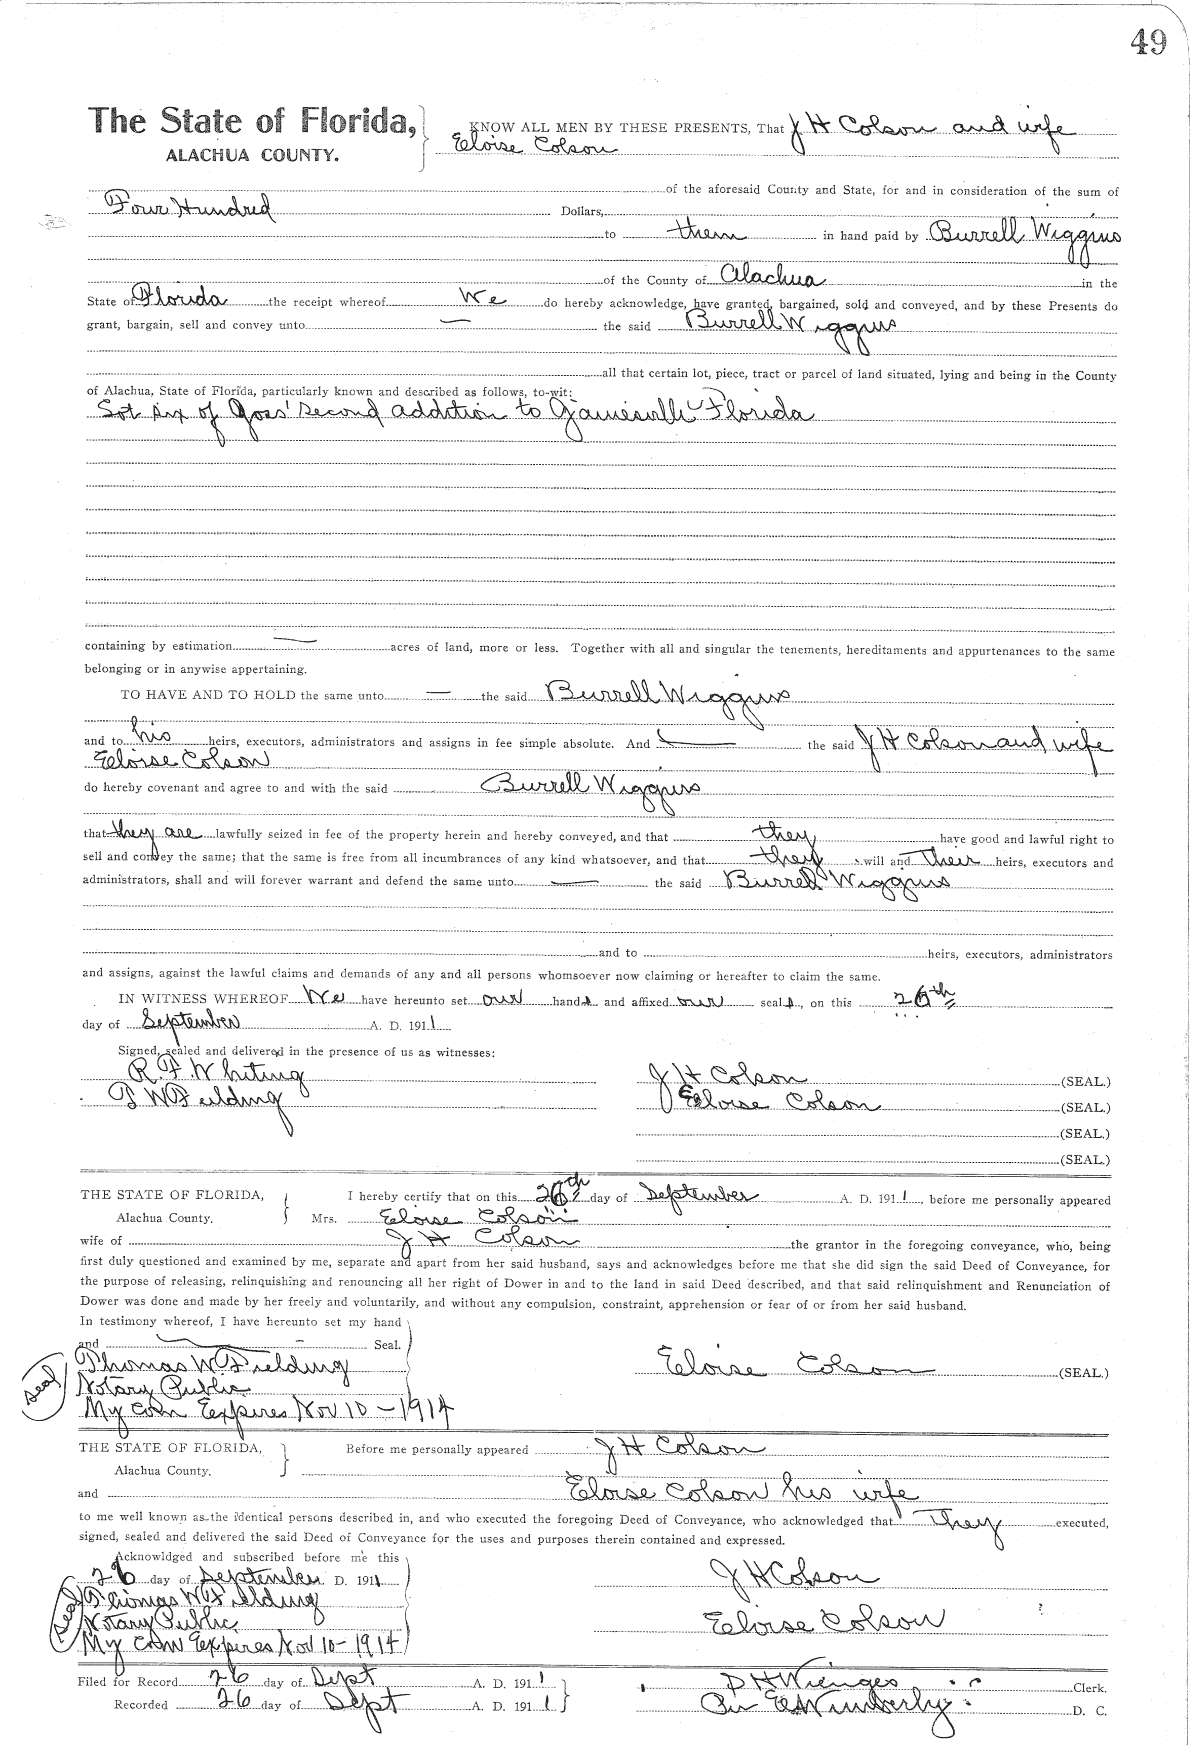 49
The State of Florida,
ALACHUA COUNTY.
KNOW ALL MEN BY THESE PRESENTS, That J H Colson and wife
Eloise Colson
of the aforesaid County and State, for and in consideration of the sum of
Four Hundred Dollars,
to them in hand paid by Burrell Wiggins
of the County of Alachua in the
State of Florida the receipt whereof We do hereby acknowledge, have granted, bargained, sold and conveyed, and by these Presents do
grant, bargain, sell and convey unto — the said Burrell Wiggins
all that certain lot, piece, tract or parcel of land situated, lying and being in the County
of Alachua, State of Florida, particularly known and described as follows, to-wit:
Lot six of Goss' Second addition to Gainesville Florida
containing by estimation — acres of land, more or less. Together with all and singular the tenements, hereditaments and appurtenances to the same
belonging or in anywise appertaining.
TO HAVE AND TO HOLD the same unto — the said Burrell Wiggins
and to his heirs, executors, administrators and assigns in fee simple absolute. And — the said J H Colson and wife
Eloise Colson
do hereby covenant and agree to and with the said Burrell Wiggins
that they are lawfully seized in fee of the property herein and hereby conveyed, and that they have good and lawful right to
sell and convey the same; that the same is free from all incumbrances of any kind whatsoever, and that they will and their heirs, executors and
administrators, shall and will forever warrant and defend the same unto — the said Burrell Wiggins
and to heirs, executors, administrators
and assigns, against the lawful claims and demands of any and all persons whomsoever now claiming or hereafter to claim the same.
IN WITNESS WHEREOF We have hereunto set our hands and affixed our seals, on this 26th
day of September A. D. 1911
Signed, sealed and delivered in the presence of us as witnesses:
R. F. Whiting J H Colson (SEAL.)
T W Fielding Eloise Colson (SEAL.)
(SEAL.)
(SEAL.)
THE STATE OF FLORIDA, I hereby certify that on this 26th day of September A. D. 1911, before me personally appeared
Alachua County. Mrs. Eloise Colson
wife of J H Colson the grantor in the foregoing conveyance, who, being
first duly questioned and examined by me, separate and apart from her said husband, says and acknowledges before me that she did sign the said Deed of Conveyance, for
the purpose of releasing, relinquishing and renouncing all her right of Dower in and to the land in said Deed described, and that said relinquishment and Renunciation of
Dower was done and made by her freely and voluntarily, and without any compulsion, constraint, apprehension or fear of or from her said husband.
In testimony whereof, I have hereunto set my hand
and — Seal.
Thomas W Fielding Eloise Colson (SEAL)
seal Notary Public
My com Expires Nov 10 - 1914
THE STATE OF FLORIDA, Before me personally appeared J H Colson
Alachua County.
and Eloise Colson his wife
to me well known as the identical persons described in, and who executed the foregoing Deed of Conveyance, who acknowledged that They executed,
signed, sealed and delivered the said Deed of Conveyance for the uses and purposes therein contained and expressed.
Acknowldged and subscribed before me this
26 day of September D. 1911 J H Colson
Thomas W Fielding
seal Notary Public Eloise Colson
My com Expires Nov 10 - 1914
Filed for Record 26 day of Sept A. D. 1911 Clerk.
Recorded 26 day of Sept A. D. 1911 D. C.